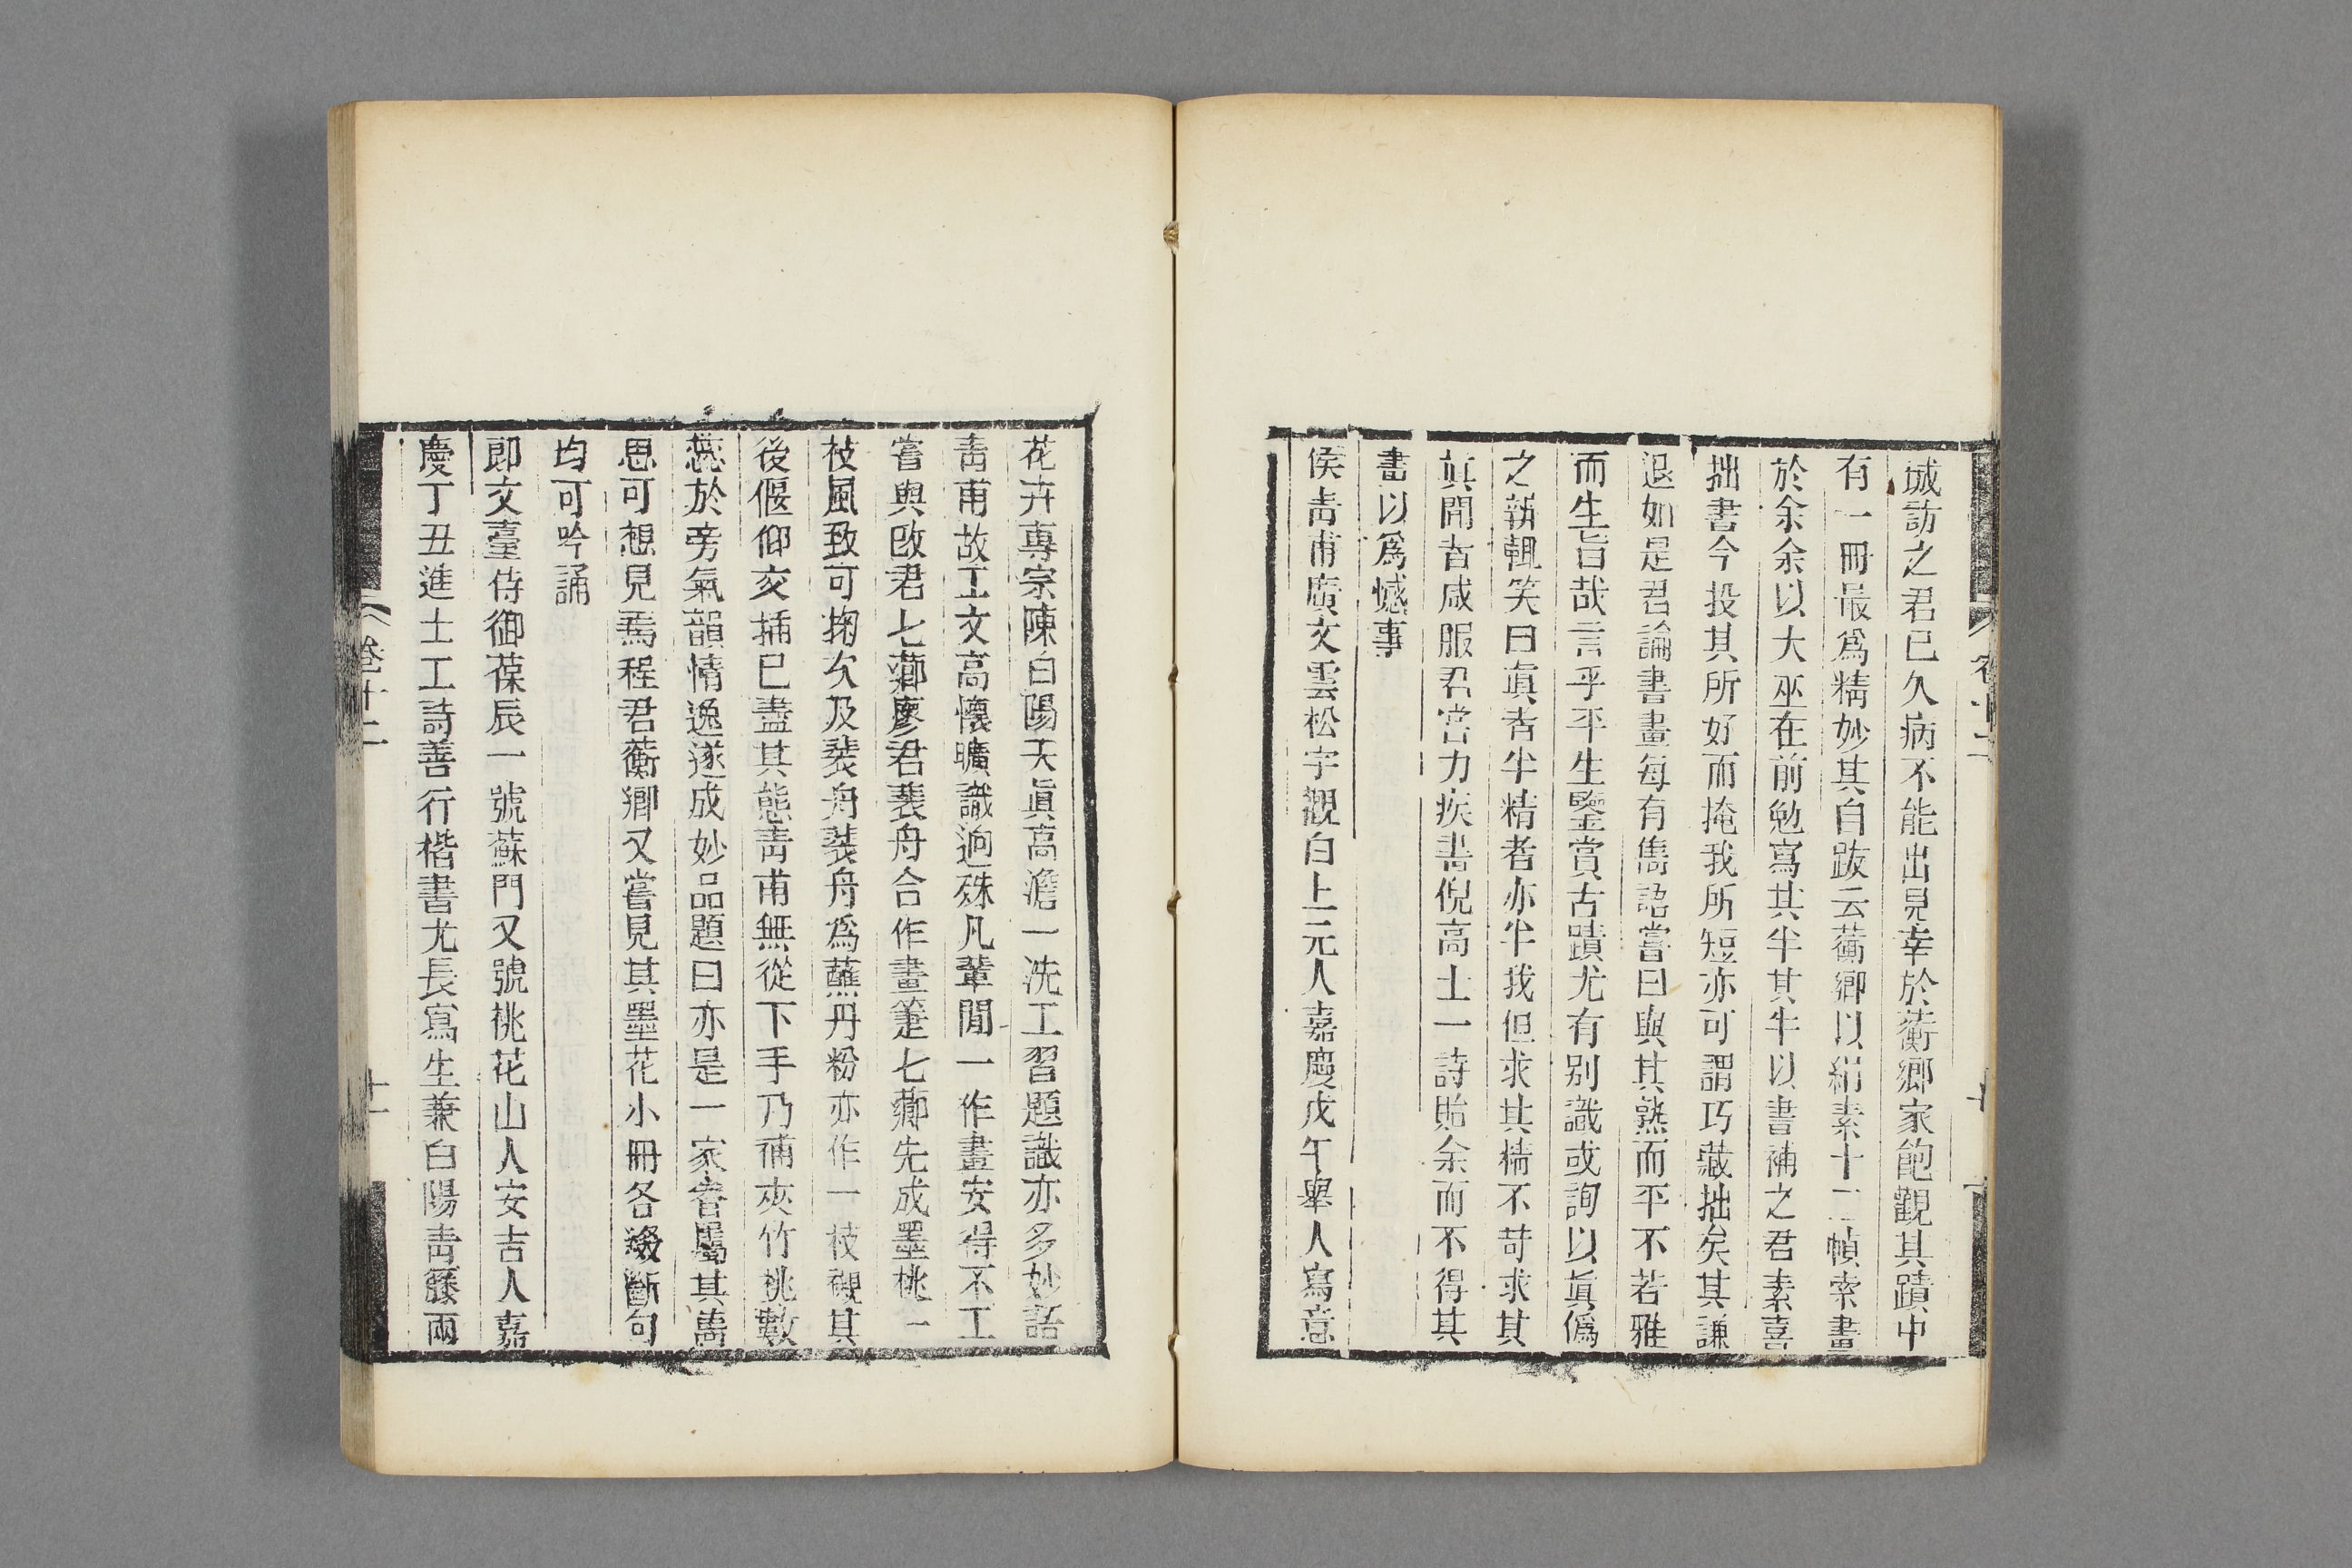 城訪之君已久病不能出見幸於蘅鄉家飽觀其蹟中
有一冊最爲精妙其自跋云蘅卿以絹素十二幀索畫
於余余以大巫在前勉寫其半其半以書補之君素喜
拙書今投其所好而掩我所短亦可謂巧藏拙矣其謙
退如是君論書畫每有雋語嘗曰與其熟而平不若雅
而生旨哉言乎平生鑒賞古蹟尤有别識或詢以眞僞
之辨輒笑曰眞者半精者亦半我但求其精不苛求其
眞聞者咸服君嘗力疾書倪高士一詩貽余而不得其
畫以爲憾事
侯靑甫廣文雲松字觀白上元人嘉慶戊午舉人寫意
卷十二
花卉專宗陳白陽天眞高澹一洗工習題識亦多妙語
靑甫故工文高懷曠識迥殊凡輩閒一作畫安得不工
嘗與改君七薌廖君裴舟合作畫箑七薌先成墨桃一
枝風致可掬次及裴舟裴舟爲蘸丹粉亦作一枝襯其
後偃仰交插已盡其態靑甫無從下手乃補夾竹桃數
蕊於旁氣韻情逸遂成妙品題曰亦是一家眷屬其雋
思可想見焉程君蘅卿又嘗見其墨花小冊各綴斷句
均可吟誦
即文臺侍御葆辰一號蘇門又號桃花山人安吉人嘉
慶丁丑進士工詩善行楷書尤長寫生兼白陽靑藤兩
卷十二
十一